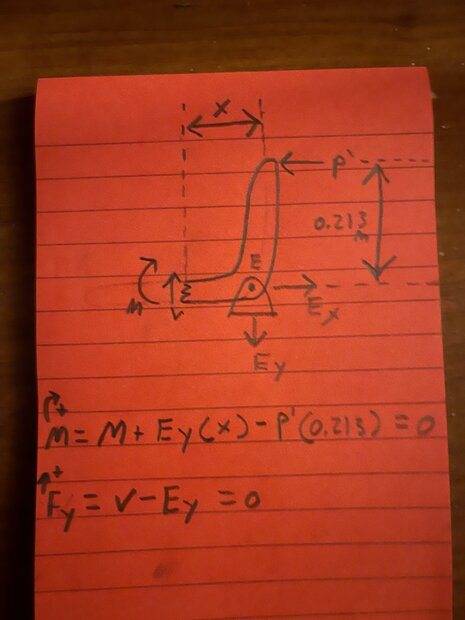 x
P'
0.213
m
E
M
V
Ex
Ey
↷+
M = M + Ey(x) - P'(0.213) = 0
↑+
Fy = V - Ey = 0